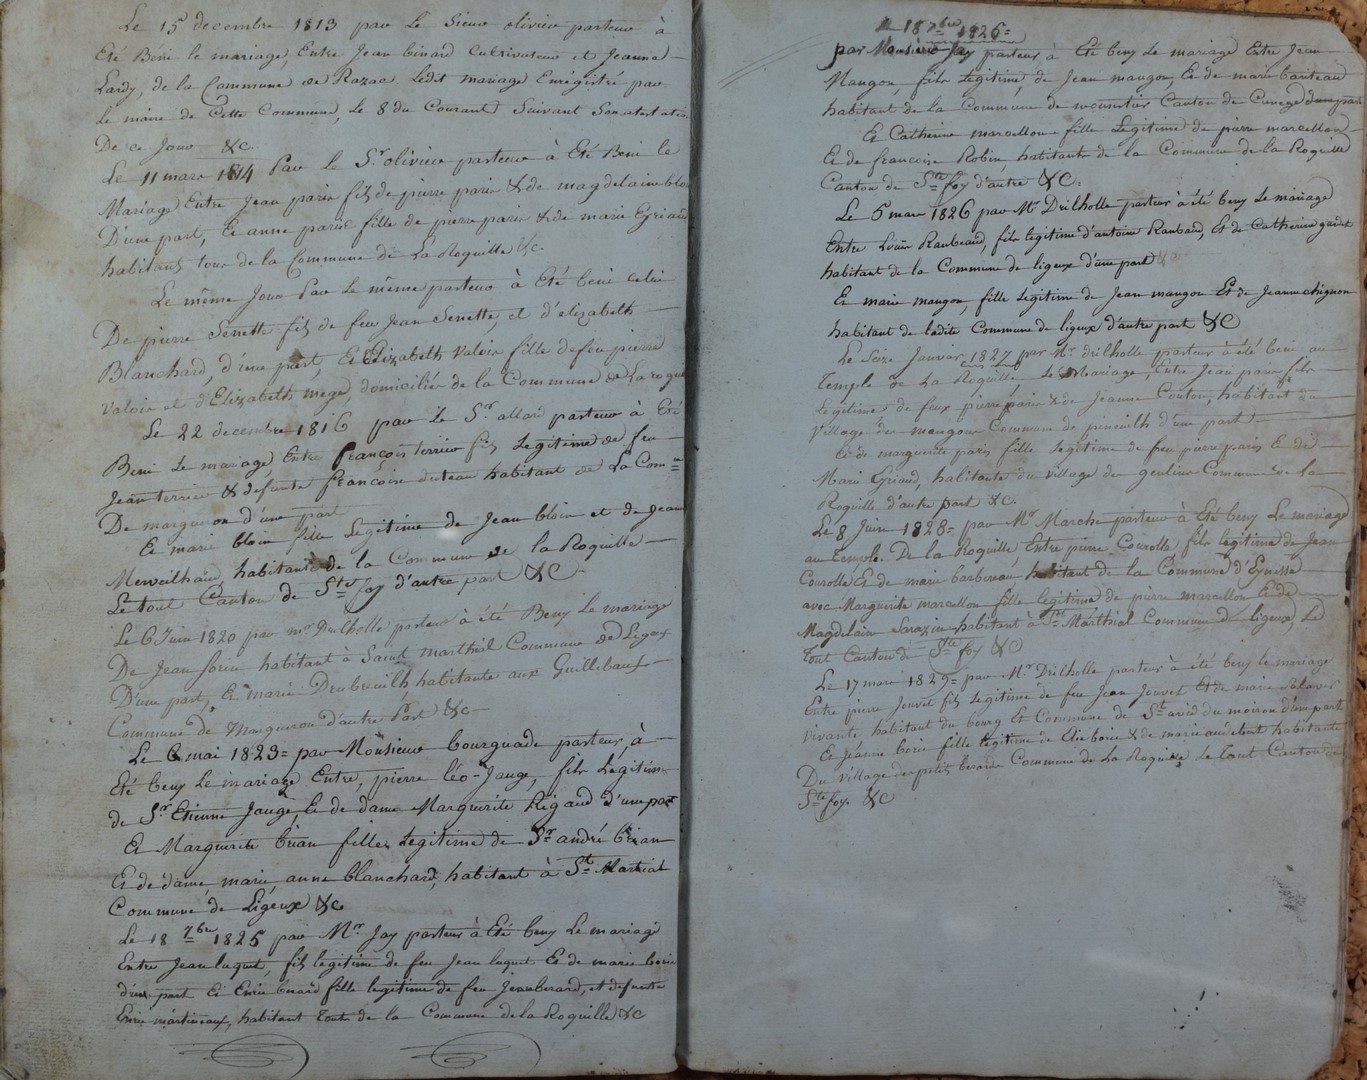 Le 15 decembre 1813 par le Sieur olivier pasteur à
Eté Béni le mariage, Entre Jean binard Cultivateur et Jeanne
Lardy, de la Commune de Razac ledit mariage Enrégistré par
le maire de Cette Commune, le 8 du Courant Suivant Son atestation
De ce Jour &c
Le 11 mars 1814 Par le Sr. olivier pasteur à Eté Beni le
Mariage Entre Jean paris fils de pierre paris & de magdelaine
D'une part, Et anne paris fille de pierre paris & de marie Eyriaud
habitans tous de la Commune de La Roquille &c.
Le même Jour Par le même pasteur à Eté beni celui
De pierre Senette fils de feu Jean Senette, et d'elizabeth
Blanchard, d'une part, Et Elizabeth valois fille de feu pierre
valois et d'Elizabeth mege, domiciliés de la Commune de La roquille
Le 22 decembre 1816 par le Sr. allard pasteur à Eté
Beni le mariage, Entre françois terrier fils Legitime de feu
Jean terrier & defunte francoise duteau habitant de La Comne
De margueron d'une part
Et marie bloin fille Legitime de Jean bloin et de Jeanne
Merveilhaud, habitante de la Commune de la Roquille
Le tout Canton de Ste foy d'autre part &C
Le 6 Juin 1820 par mr Drilholle pasteur à été Beny le mariage
De Jean Sorin habitant à Saint marthial Commune de Ligeux
D'une part, Et marie Deubreuilh habitante aux Guillebauf
Commune de Margueron d'autre Part &c
Le 6 mai 1823 = par Monsieur bourguade pasteur, à
Eté beny le mariage Entre, pierre léo-Jauge, fils Legitime
de Sr. Etienne Jauge, Et de dame Marguerite Rigaud d'une part
Et Marguerite brian fille, Legitime de Sr. andré brian
Et de dame marie, anne blanchard, habitant à St. Martial
Commune de Ligeux &c
Le 18 7bre 1825 par Mr Jay pasteur à Eté beny Le mariage
Entre Jean luquet, fils legitime de feu Jean luquet Et de marie
d'une part Et Enrie binard fille legitime de feu Jean binard, et defunte
Enrie martineaux, habitant toute de la Commune de la Roquille &c
Le 18 7bre 1825 =
par Monsieur Jay pasteur à Eté beny Le mariage Entre Jean
Mangon, fils Legitime, de Jean mangon, Et de marie
habitant de la Commune de monestier Canton de Cunege d'une part
Et Catherine marcellon fille Legitime de pierre marcellon
Et de françoise Robin habitante de la Commune de la Roquille
Canton de Ste foy d'autre &C.
Le 5 mars 1826 par Mr. Drilholle pasteur à été beny Le mariage
Entre Louis Raubeaud, fils legitime d'antoine Raubaud, Et de Catherine
habitant de la Commune de ligeux d'une part &c
Et marie mangon, fille Legitime de Jean mangon Et de Jeanne chignon
habitant de ladite Commune de ligeux d'autre part &C
Le Seize Janvier 1827 par Mr. drilholle pasteur à été béni au
Temple de La Roquille Le Mariage, Entre Jean paris fils
Legitime de feux pierre paris & de Jeanne Couton, habitant du
Village des mangons Commune de pineuilh d'une part
Et de marguerite paris fille Legitime de feu pierre paris Et de
Marie Eyriaud, habitante du village de Commune de la
Roquille d'autre part &C.
Le 8 Juin 1828 = par Mr Marche pasteur à Eté beny Le mariage
au Temple De la Roquille Entre pierre Courolle fils legitime de Jean
Courolle Et de marie barbereau, habitant de la Commune d'Eynesse
avec Marguerite marcellon fille legitime de pierre marcellon Et de
Magdelaine Sarazin habitant à St Marthial Commune de Ligeux, Le
Tout Canton de Ste foy &C
Le 17 mars 1829 = par Mr. Drilholle pasteur à été beny le mariage
Entre pierre Jouvet fils Legitime de feu Jean Jouvet Et de marie
vivante habitant du bourg Et Commune de St. avid du moiron d'une part
Et Jeanne borie fille legitime de Elie borie & de marie audebert habitante
Du village des petits Commune de La Roquille, le Tout Canton de
Ste foy. &C